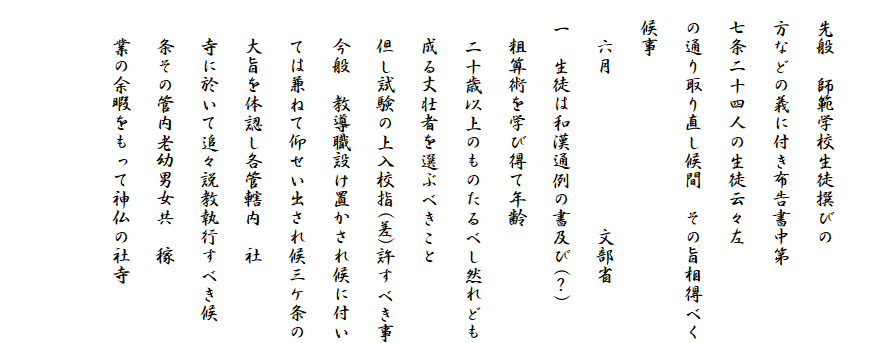 先般　師範学校生徒撰びの
方などの義に付き布告書中第
七条二十四人の生徒云々左
の通り取り直し候間　その旨相得べく
候事
六月　　　　　　　文部省
一　生徒は和漢通例の書及び(？)
粗算術を学び得て年齢
二十歳以上のものたるべし然れども
成る丈壮者を選ぶべきこと
但し試験の上入校指(差)許すべき事
今般　教導職設け置かされ候に付い
ては兼ねて仰せい出され候三ケ条の
大旨を体認し各管轄内　社
寺に於いて追々説教執行すべき候
条その管内老幼男女共　稼
業の余暇をもって神仏の社寺